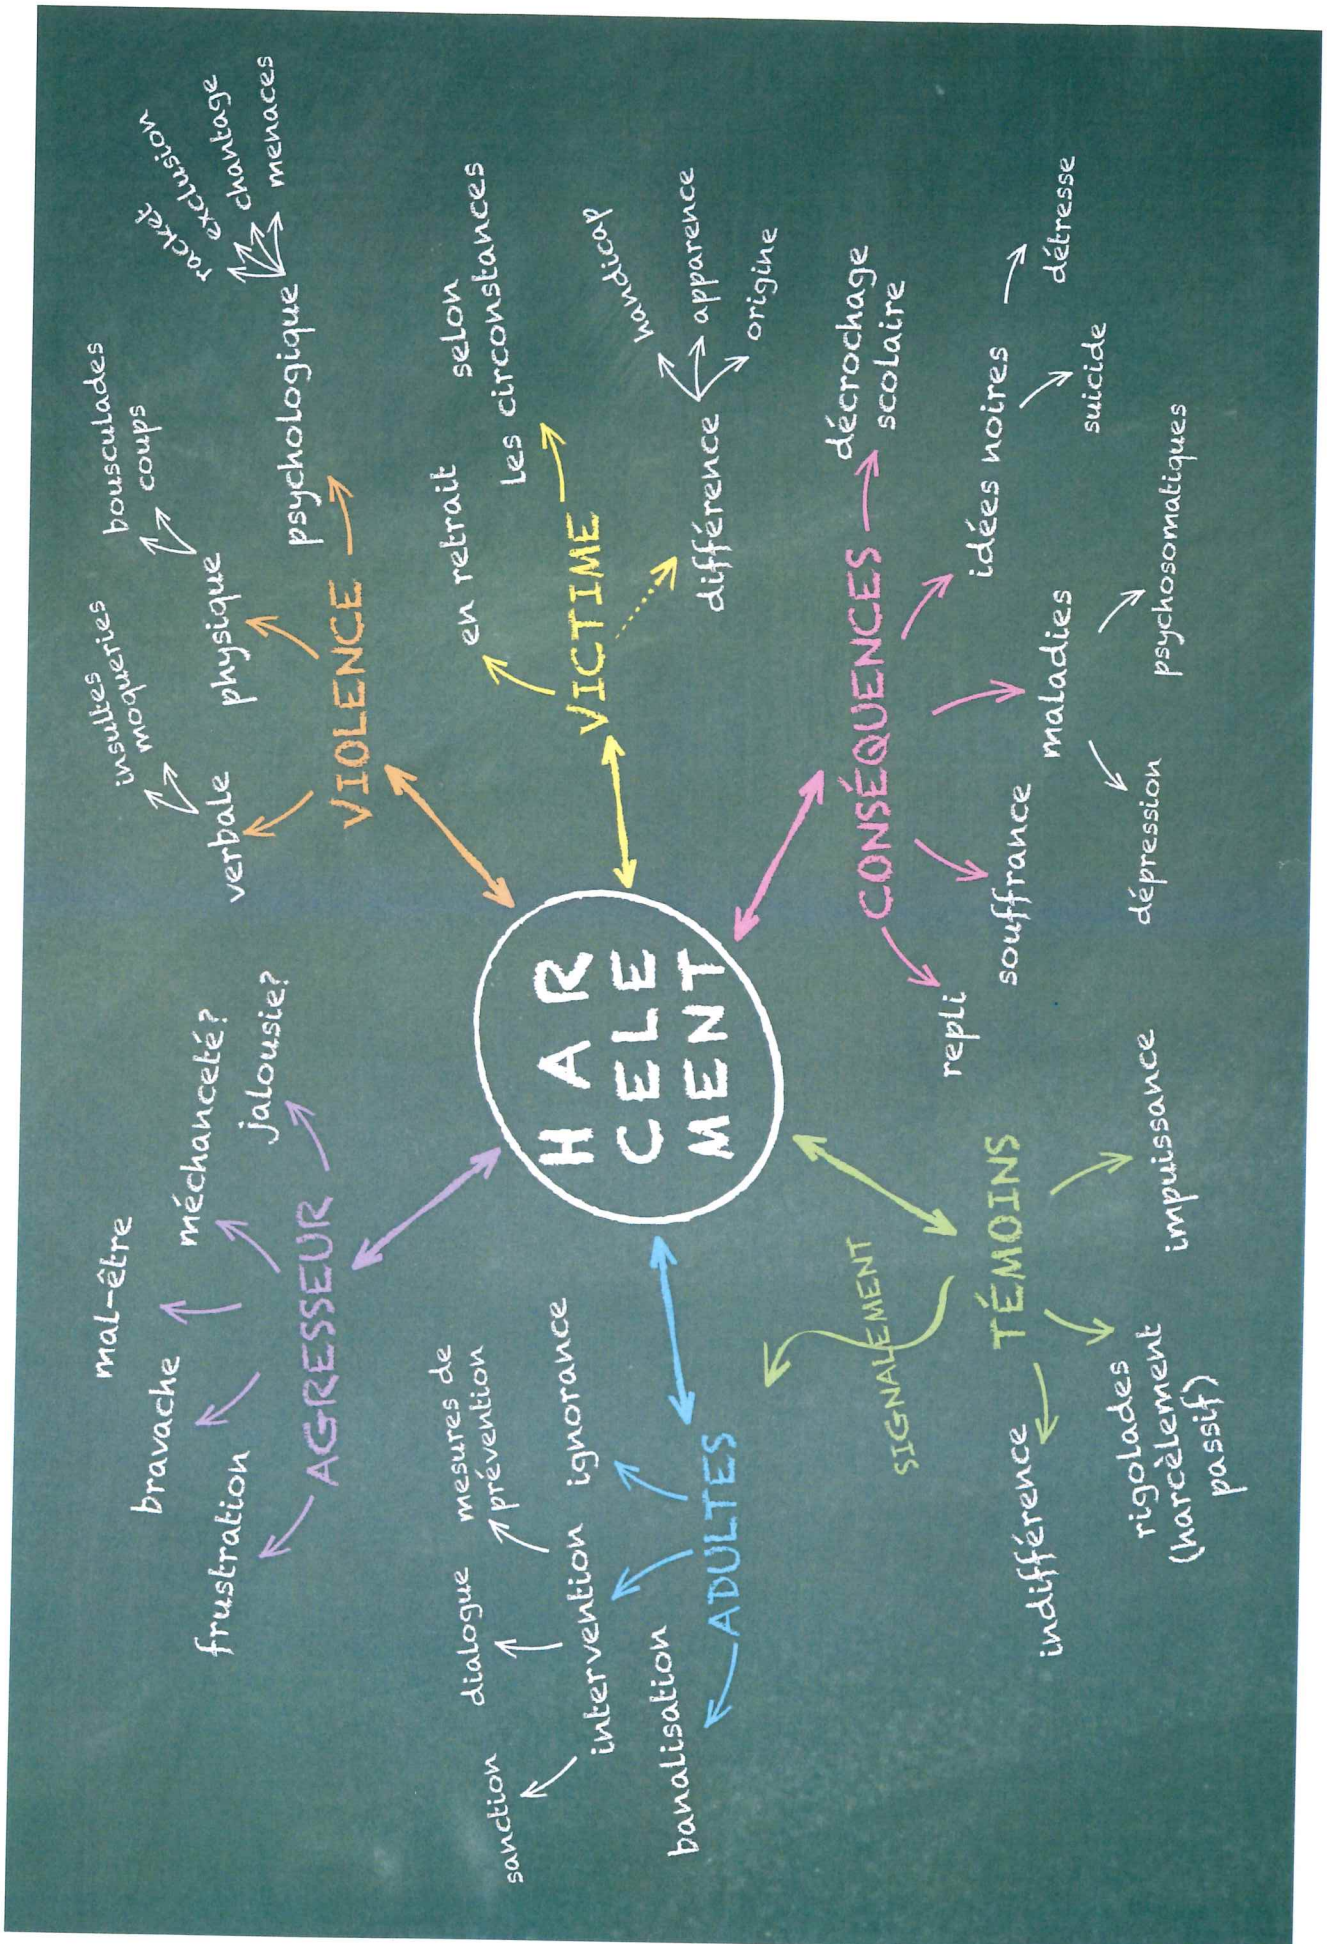 H A R
C E L E
M E N T
AGRESSEUR
frustration
bravache
mal-être
méchanceté?
jalousie?
VIOLENCE
verbale
insultes
moqueries
physique
bousculades
coups
psychologique
racket
exclusion
chantage
menaces
VICTIME
en retrait
selon
les circonstances
différence
handicap
apparence
origine
CONSÉQUENCES
décrochage
scolaire
idées noires
détresse
suicide
maladies
psychosomatiques
dépression
souffrance
repli
TÉMOINS
SIGNALEMENT
impuissance
rigolades
(harcèlement
passif)
indifférence
ADULTES
banalisation
intervention
sanction
dialogue
mesures de
prévention
ignorance